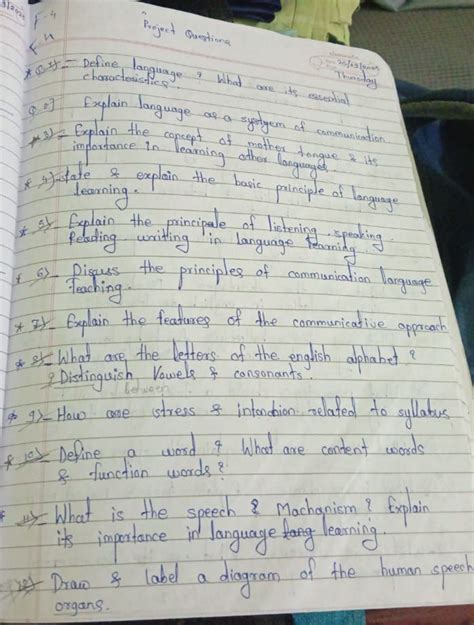 F-4
Project Questions
F-4
Thursday
Q.1)- Define language? What are its essential
characteristics.
Q.2] Explain language as a system of communication
3)- Explain the concept of mother tongue & its
importance in learning other languages.
4)- state & explain the basic principle of language
learning.
5)- Explain the principale of listening, speaking
Reading writing in language learning.
6)- Discuss the principles of communication language
Teaching.
7)- Explain the features of the communicative approach
8)- What are the letters of the english alphabet?
& Distinguish Vowels & consonants.
between
9)- How are stress & intonation related to syllabus
10)- Define a word? What are content words
& function words?
11)- What is the speech & Machanism? Explain
its importance in language lang learning.
12)- Draw & label a diagram of the human speech
organs.